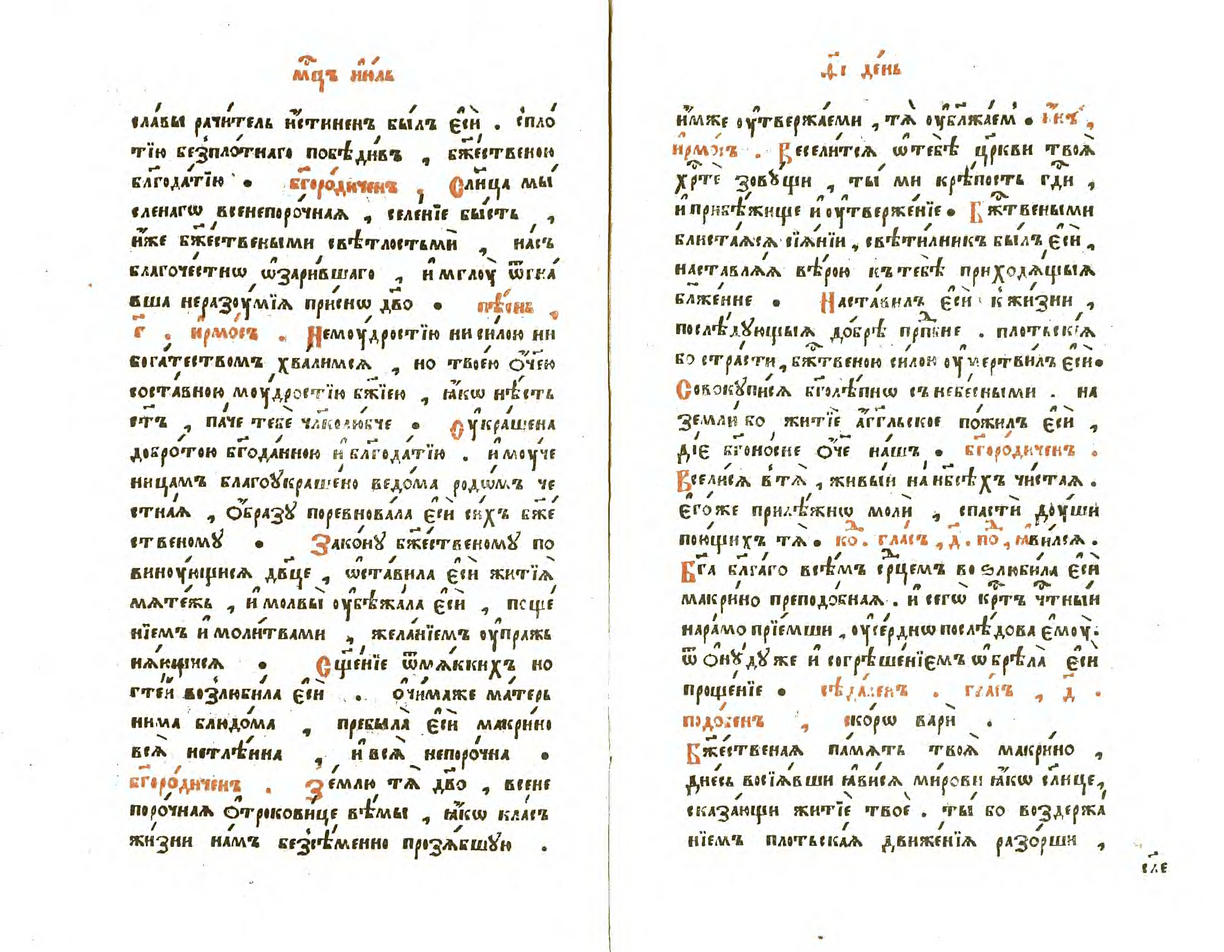 мⷭ҇цъ ию́ль
сла́вы рачи́тель и҆́стиненъ бы́лъ є҆сѝ . спло
тїю беспло́тнаго побѣди́въ , бж҃ественою
блгⷣа́тїю • бг҃оро́диченъ , Сл҃нца мы́
сленагѡ всенепоро́чная , селе́нїе бы́сть ,
и҆́же бж҃ествеными свѣ́тлостьмѝ , на́съ
благоче́стнѡ ѡ҆зари́вшаго , и҆ мглоу̀ ѿгна́
вша неразоу́мїя при́снѡ дв҃о • пѣ́снь ,
г҃ . и҆рмо́съ . Не моу́дростїю ни си́лою ни
бога́тествомъ хва́лимся , но твое́ю ѻ҆́ч҃ею
соста́вною моу́дростїю бж҃їею , ꙗ҆́кѡ нѣ́сть
ст҃ъ , па́че тебѐ чл҃колю́бче • Оу҆кра́шена
добро́тою бг҃ода́нною и҆ блгⷣа́тїю . и҆ моу́че
ницамъ благоꙋкраше́но ве́дома ро́дѡмъ че
стна́я , ѻ҆́бразꙋ поревнова́ла є҆сѝ си́хъ бж҃е
ственомꙋ • Зако́нꙋ бж҃е́ственомꙋ по
виноу́ющися дв҃це , ѡ҆ста́вила є҆сѝ житїѧ̀
мяте́жь , и҆ молвы̀ оу҆бѣжа́ла є҆сѝ , поще́
нїемъ и҆ моли́твами , жела́нїемъ оу҆пражь
ня́ющися • Сщ҃е́нїе ѿ мя́ккихъ но
гте́й возлюби́ла є҆сѝ . очи́ма же ма́терь
нима блюдо́ма , пребыла̀ є҆сѝ макри́но
всѧ̀ нетлѣ́нна , и҆ всѧ̀ непоро́чна •
бг҃оро́диченъ . Зе́млю тѧ̀ дв҃о , всене
поро́чная ѻ҆трокови́це вѣ́мы , ꙗ҆́кѡ кла́съ
жи́зни на́мъ безсѣ́менно прозя́бшꙋю .
д҃і де́нь
и҆́мже оу҆твержа́еми , тѧ̀ оу҆бл҃жа́ем • и҆́нъ ,
и҆рмо́съ . Весели́тся ѡ҆ тебѣ̀ цр҃кви твоѧ̀
хрⷭ҇тѐ зовꙋ́щи , ты́ ми крѣ́пость гдⷭ҇и ,
и҆ прибѣ́жище и҆ оу҆твержде́нїе • Бжⷭ҇твеными
блиста́яся сїѧ́нїи , свѣти́лникъ бы́лъ є҆сѝ ,
наставля́я вѣ́рою къ тебѣ̀ приходѧ́щыѧ
бл҃же́нне • Наста́вилъ є҆сѝ к жи́зни ,
послѣ́дꙋющыѧ до́брѣ прпⷣбне . пло́тьскїѧ
бо стра́сти , бжⷭ҇твеною си́лою оу҆мертви́лъ є҆сѝ•
Совокꙋпи́ся бг҃олѣ́пнѡ съ небе́сными . на
землѝ бо житїѐ а҆́гг҃льское по́жилъ є҆сѝ ,
ді́е бг҃оно́сне ѻ҆́ч҃е на́шъ • бг҃оро́диченъ .
Всели́ся в тѧ̀ , живы́и на нб҃сѣ́хъ чи́стая .
є҆го́же приле́жнѡ молѝ , спастѝ доу́ши
пою́щихъ тѧ̀ • ко҇ . гла́съ , д҃ . по҇ , ꙗ҆ви́лся .
Бг҃а бл҃га́го всѣ́мъ срⷣцемъ возлюби́ла є҆сѝ
макри́но преподо́бная . и҆ сегѡ̀ крⷭ҇тъ чтⷭ҇ны́й
на ра́мо прїе́мши , оу҆се́рднѡ послѣ́дова є҆моу̀ .
ѿ ѻ҆нꙋ́дꙋ же и҆ согрѣше́нїемъ ѡ҆брѣла̀ є҆сѝ
проще́нїе • сѣда́ленъ . гла́съ , д҃ .
подо́бенъ , ско́рѡ варѝ .
Бж҃е́ственая па́мять твоѧ̀ макри́но ,
дне́сь восїѧ́вши ꙗ҆ви́ся ми́рови ꙗ҆́кѡ сл҃нце,
сказа́ющи житїѐ твоѐ . ты́ бо воздержа́
нїемъ пло́тьская движе́нїя разо́рши ,
сл҃е